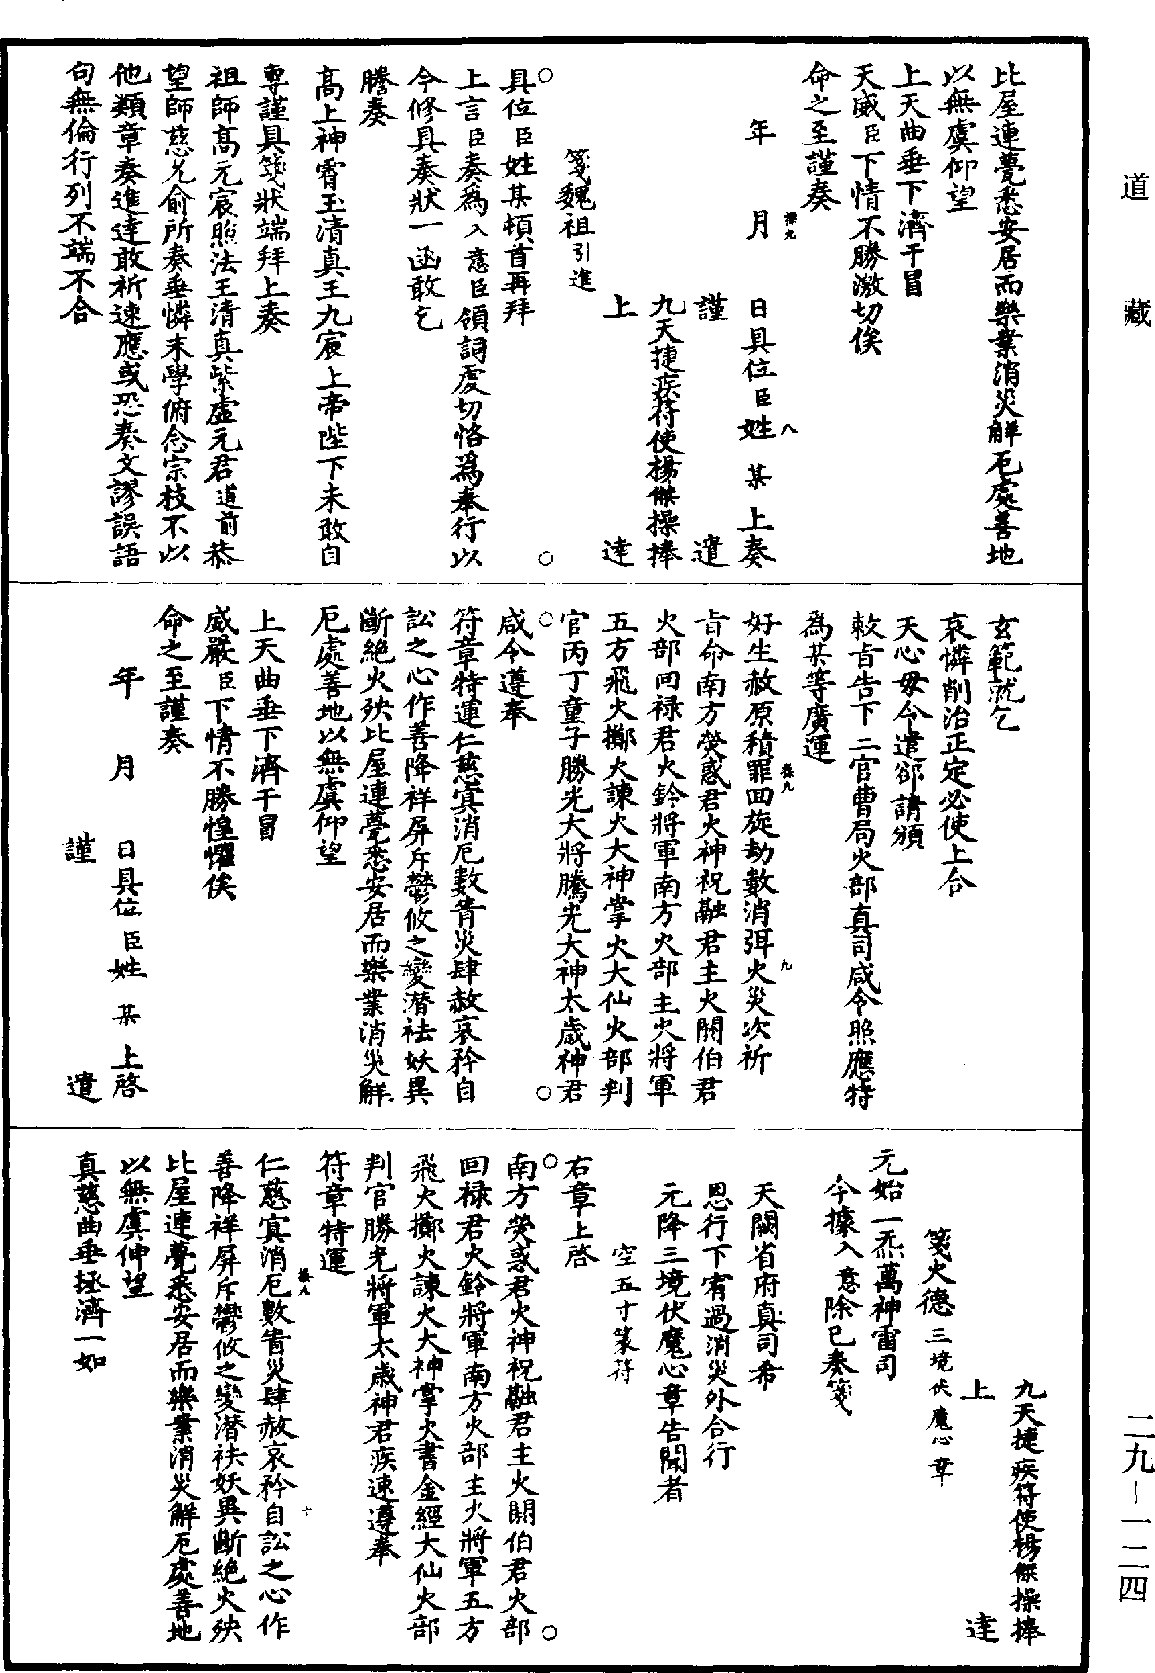 道藏
二九－一二四
比屋連甍悉安居而樂業消災解厄處善地
以無虞仰望
上天曲垂下濟干冒
天威臣下情不勝激切俟
命之至謹奏
年　月　日具位臣姓某上奏
謹　遣
九天捷疾符使楊傑操捧
上　達
箋魏祖引進
具位臣姓某頓首再拜
上言臣奏為入意臣領詞虔切恪為奉行以
今修具奏狀一函敢乞
騰奏
高上神霄玉清真王九宸上帝陛下未敢自
專謹具箋狀端拜上奏
祖師高元宸照法王清真紫虛元君道前恭
望師慈允俞所奏垂憐末學俯念宗枝不以
他類章奏進達敢祈速應或恐奏文謬誤語
句無倫行列不端不合
玄範就乞
哀憐削治正定必使上合
天心毋令遣郤請頒
敕旨告下二官曹局火部真司咸令照應特
為某等廣運
好生赦原積罪回旋劫數消弭火災次祈
旨命南方熒惑君火神祝融君主火閼伯君
火部回祿君火鈴將軍南方火部主火將軍
五方飛火擲火諫火大神掌火大仙火部判
官丙丁童子勝光大將騰光大神太歲神君
咸令遵奉
符章特運仁慈寘消厄數眚災肆赦哀矜自
訟之心作善降祥屏斥鬱攸之變潛祛妖異
斷絕火殃比屋連甍悉安居而樂業消災解
厄處善地以無虞仰望
上天曲垂下濟干冒
威嚴臣下情不勝惶懼俟
命之至謹奏
年　月　日具位臣姓某上啓
謹　遣
九天捷疾符使楊傑操捧
上　達
箋火德三境伏魔心章
元始一炁萬神雷司
今據入意除已奏箋
天闕省府真司希
恩行下宥過消災外合行
元降三境伏魔心章告聞者
空五寸篆符
右章上啓
南方熒惑君火神祝融君主火閼伯君火部
回祿君火鈴將軍南方火部主火將軍五方
飛火擲火諫火大神掌火書金經大仙火部
判官勝光將軍太歲神君疾速遵奉
符章特運
仁慈寘消厄數眚災肆赦哀矜自訟之心作
善降祥屏斥鬱攸之變潛祛妖異斷絕火殃
比屋連甍悉安居而樂業消災解厄處善地
以無虞伸望
真慈曲垂拯濟一如